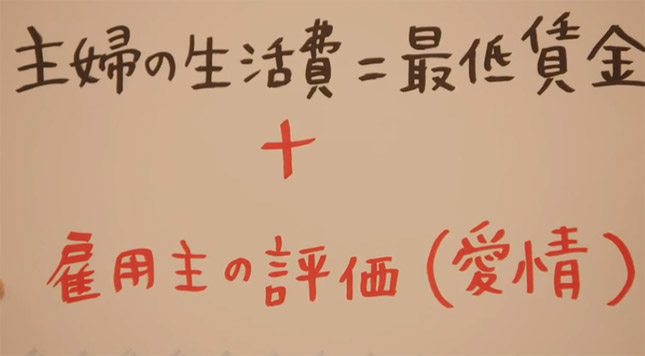 主婦の生活費=最低賃金
+
雇用主の評価(愛情)